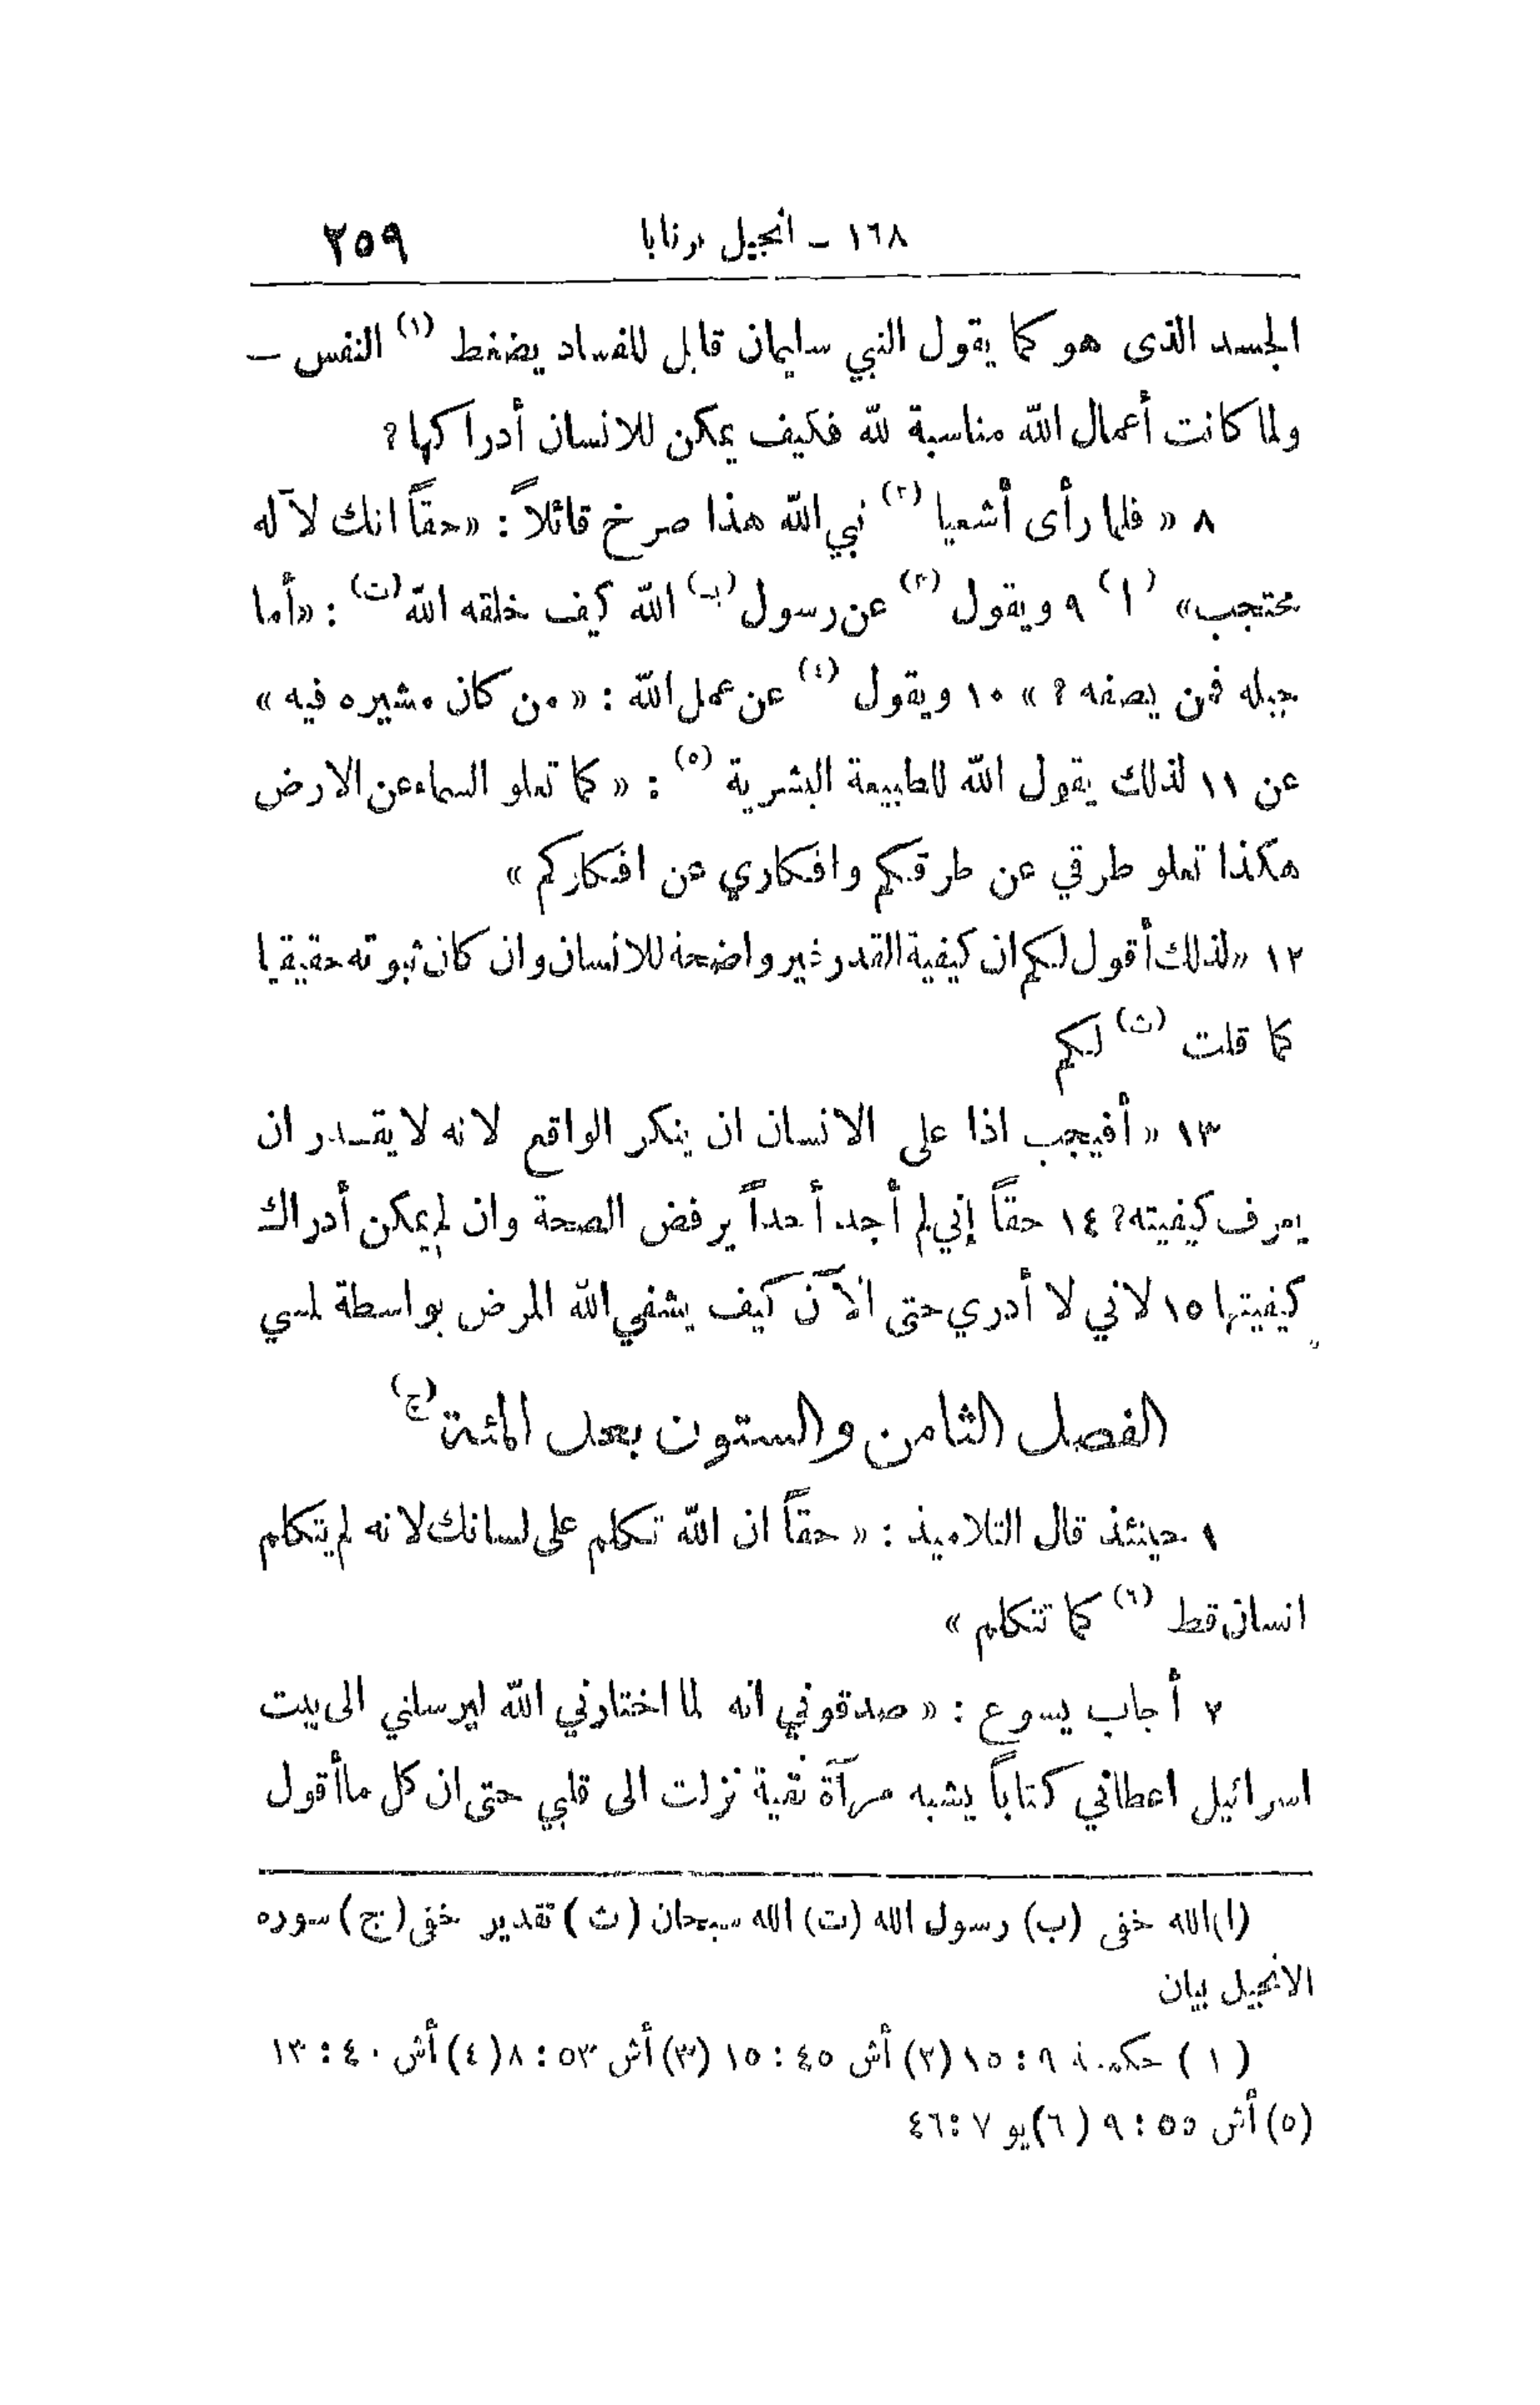 ١٦٨ – انجيل برنابا ٢٥٩
الجسد الذى هو كما يقول النبي سليمان قابل للفساد يضغط (١) النفس –
ولما كانت أعمال الله مناسبة لله فكيف يمكن للانسان أدراكها ؟
٨ « فلما رأى أشعيا (٢) نبي الله هذا صرخ قائلاً : « حقاً انك لآله
محتجب » (ا) ٩ ويقول (٣) عن رسول (ب) الله كيف خلقه الله (ت) : « أما
جيله فمن يصفه ؟ » ١٠ ويقول (٤) عن عمل الله : « من كان مشيره فيه »
عن ١١ لذلك يقول الله للطبيعة البشرية (٥) : « كما تعلو السماء عن الارض
هكذا تعلو طرقي عن طرقكم وافكاري عن افكاركم »
١٢ « لذلك أقول لكم ان كيفية القدر غير واضحة للانسان وان كان ثبوته حقيقيا
كما قلت (ث) لكم
١٣ « أفيجب اذا على الانسان ان ينكر الواقع لانه لا يقدر ان
يعرف كيفيته ؟ ١٤ حقاً إني لم أجد أحداً يرفض الصحة وان لم يمكن أدراك
كيفيتها ١٥ لاني لا أدري حتى الآن كيف يشفي الله المرض بواسطة لمسي »
الفصل الثامن والستون بعد المئة (ج)
١ حينئذ قال التلاميذ : « حقاً ان الله تكلم على لسانك لانه لم يتكلم
انسان قط (٦) كما تتكلم »
٢ أجاب يسوع : « صدقوني انه لما اختارني الله ليرسلني الى بيت
اسرائيل اعطاني كتاباً يشبه مرآة نقية نزلت الى قلبي حتى ان كل ما أقول
(ا) الله خفى (ب) رسول الله (ت) الله سبحان (ث) تقدير خفى (ج) سوره
الانجيل بيان
(١) حكمة ٩ : ١٥ (٢) أش ٤٥ : ١٥ (٣) أش ٥٣ : ٨ (٤) أش ٤٠ : ١٣
(٥) أش ٥٥ : ٩ (٦) يو ٧ : ٤٦